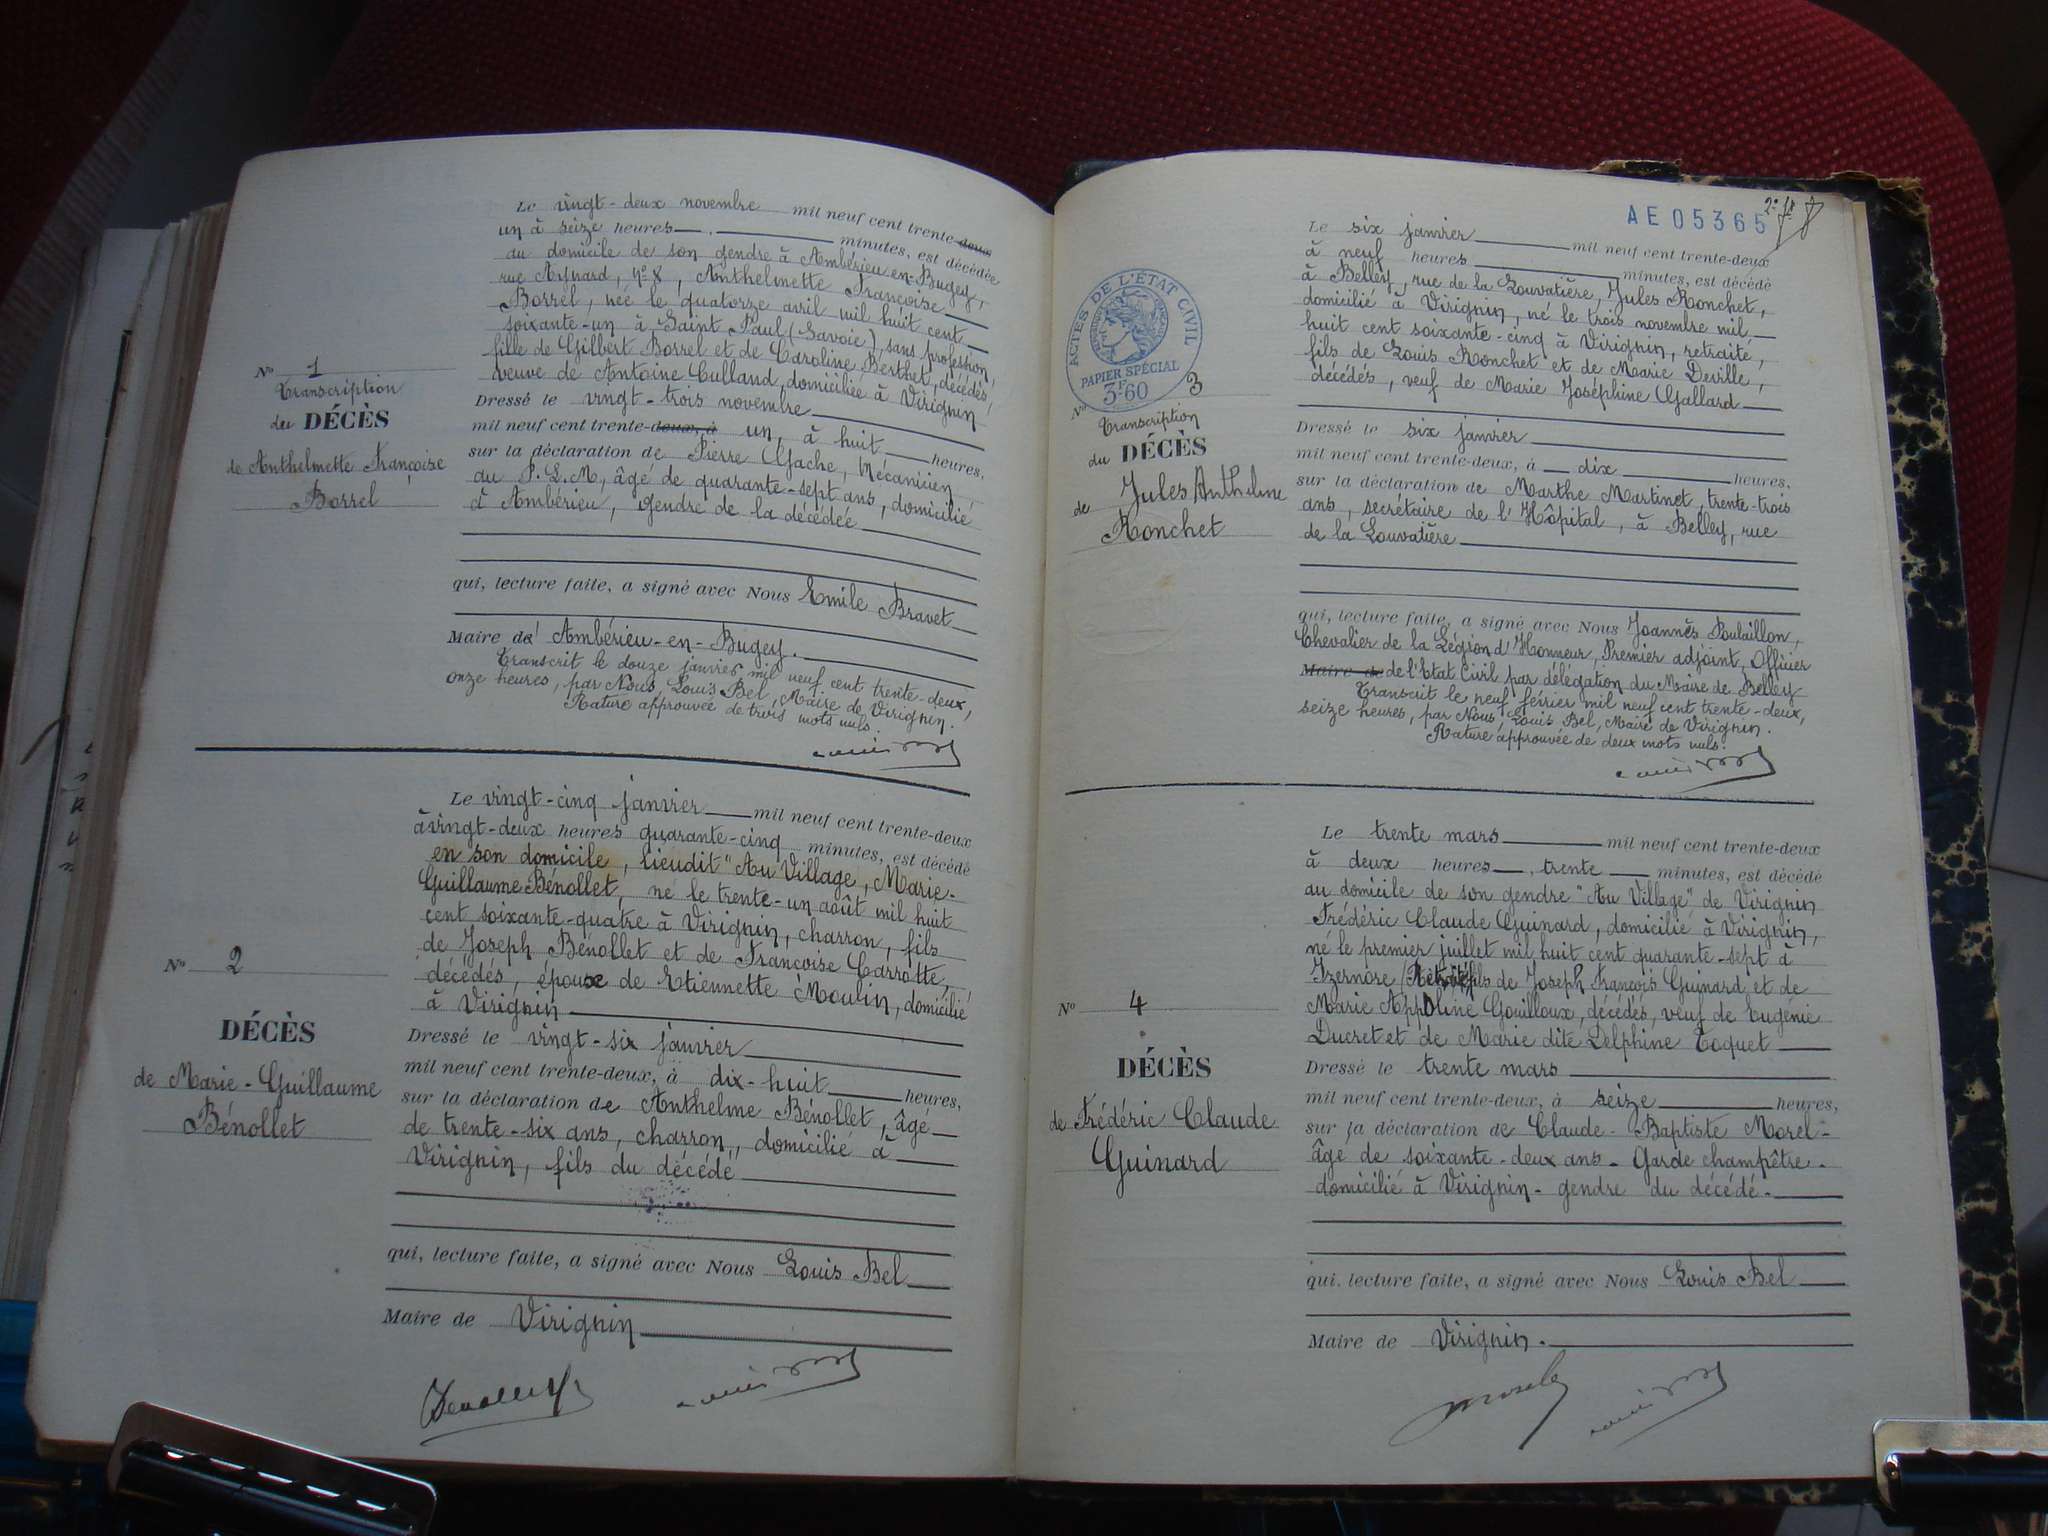 Le vingt-deux novembre mil neuf cent trente-deux
un à seize heures minutes, est décédée
au domicile de son gendre à Ambérieu-en-Bugey,
rue Aynard, nº 8, Anthelmette Françoise
Borrel, née le quatorze avril mil huit cent
soixante-un à Saint Paul (Savoie), sans profession,
fille de Gilbert Borrel et de Caroline Berthet, décédés,
veuve de Antoine Culland, domiciliée à Virignin
Dressé le vingt-trois novembre
mil neuf cent trente-deux, à un, à huit heures,
sur la déclaration de Pierre Gache, Mécanicien
au P.L.M, âgé de quarante-sept ans, domicilié
à Ambérieu, gendre de la décédée
qui, lecture faite, a signé avec Nous Emile Bravet
Maire d' Ambérieu-en-Bugey.
Transcrit le douze janvier mil neuf cent trente-deux,
onze heures, par Nous Louis Bel, Maire de Virignin.
Rature approuvée de trois mots nuls.
Nº 1
Transcription
du DÉCÈS
de Anthelmette Françoise
Borrel
Le vingt-cinq janvier mil neuf cent trente-deux
à vingt-deux heures quarante-cinq minutes, est décédé
en son domicile, lieudit "Au Village, Marie-
Guillaume Bénollet, né le trente-un août mil huit
cent soixante-quatre à Virignin, charron, fils
de Joseph Bénollet et de Françoise Carrotte,
décédés, époux de Etiennette Moulin, domicilié
à Virignin
Dressé le vingt-six janvier
mil neuf cent trente-deux, à dix-huit heures,
sur la déclaration de Anthelme Bénollet, âgé
de trente-six ans, charron, domicilié à
Virignin, fils du décédé
qui, lecture faite, a signé avec Nous Louis Bel
Maire de Virignin
Nº 2
DÉCÈS
de Marie-Guillaume
Bénollet
AE05365
Le six janvier mil neuf cent trente-deux
à neuf heures minutes, est décédé
à Belley, rue de la Louvatière, Jules Ronchet,
domicilié à Virignin, né le trois novembre mil
huit cent soixante-cinq à Virignin, retraité,
fils de Louis Ronchet et de Marie Deville,
décédés, veuf de Marie Joséphine Gallard
Dressé le six janvier
mil neuf cent trente-deux, à dix heures,
sur la déclaration de Marthe Martinet, trente-trois
ans, secrétaire de l'Hôpital, à Belley, rue
de la Louvatière
qui, lecture faite, a signé avec Nous Joannès Poulaillon,
Chevalier de la Légion d'Honneur, Premier adjoint, Officier
Maire de de l'Etat Civil par délégation du Maire de Belley
Transcrit le neuf février mil neuf cent trente-deux,
seize heures, par Nous Louis Bel, Maire de Virignin.
Rature approuvée de deux mots nuls.
ACTES DE L'ÉTAT CIVIL
PAPIER SPÉCIAL
3F60
Nº 3
Transcription
du DÉCÈS
de Jules Anthelme
Ronchet
Le trente mars mil neuf cent trente-deux
à deux heures, trente minutes, est décédé
au domicile de son gendre "Au Village" de Virignin
Frédéric Claude Guinard, domicilié à Virignin,
né le premier juillet mil huit cent quarante-sept à
Izernore fils de Joseph François Guinard et de
Marie Appoline Gouilloux, décédés, veuf de Eugénie
Ducret et de Marie dite Delphine Toquet
Dressé le trente mars
mil neuf cent trente-deux, à seize heures,
sur la déclaration de Claude-Baptiste Morel-
âgé de soixante-deux ans- Garde champêtre-
domicilié à Virignin- gendre du décédé-
qui, lecture faite, a signé avec Nous Louis Bel
Maire de Virignin.
Nº 4
DÉCÈS
de Frédéric Claude
Guinard